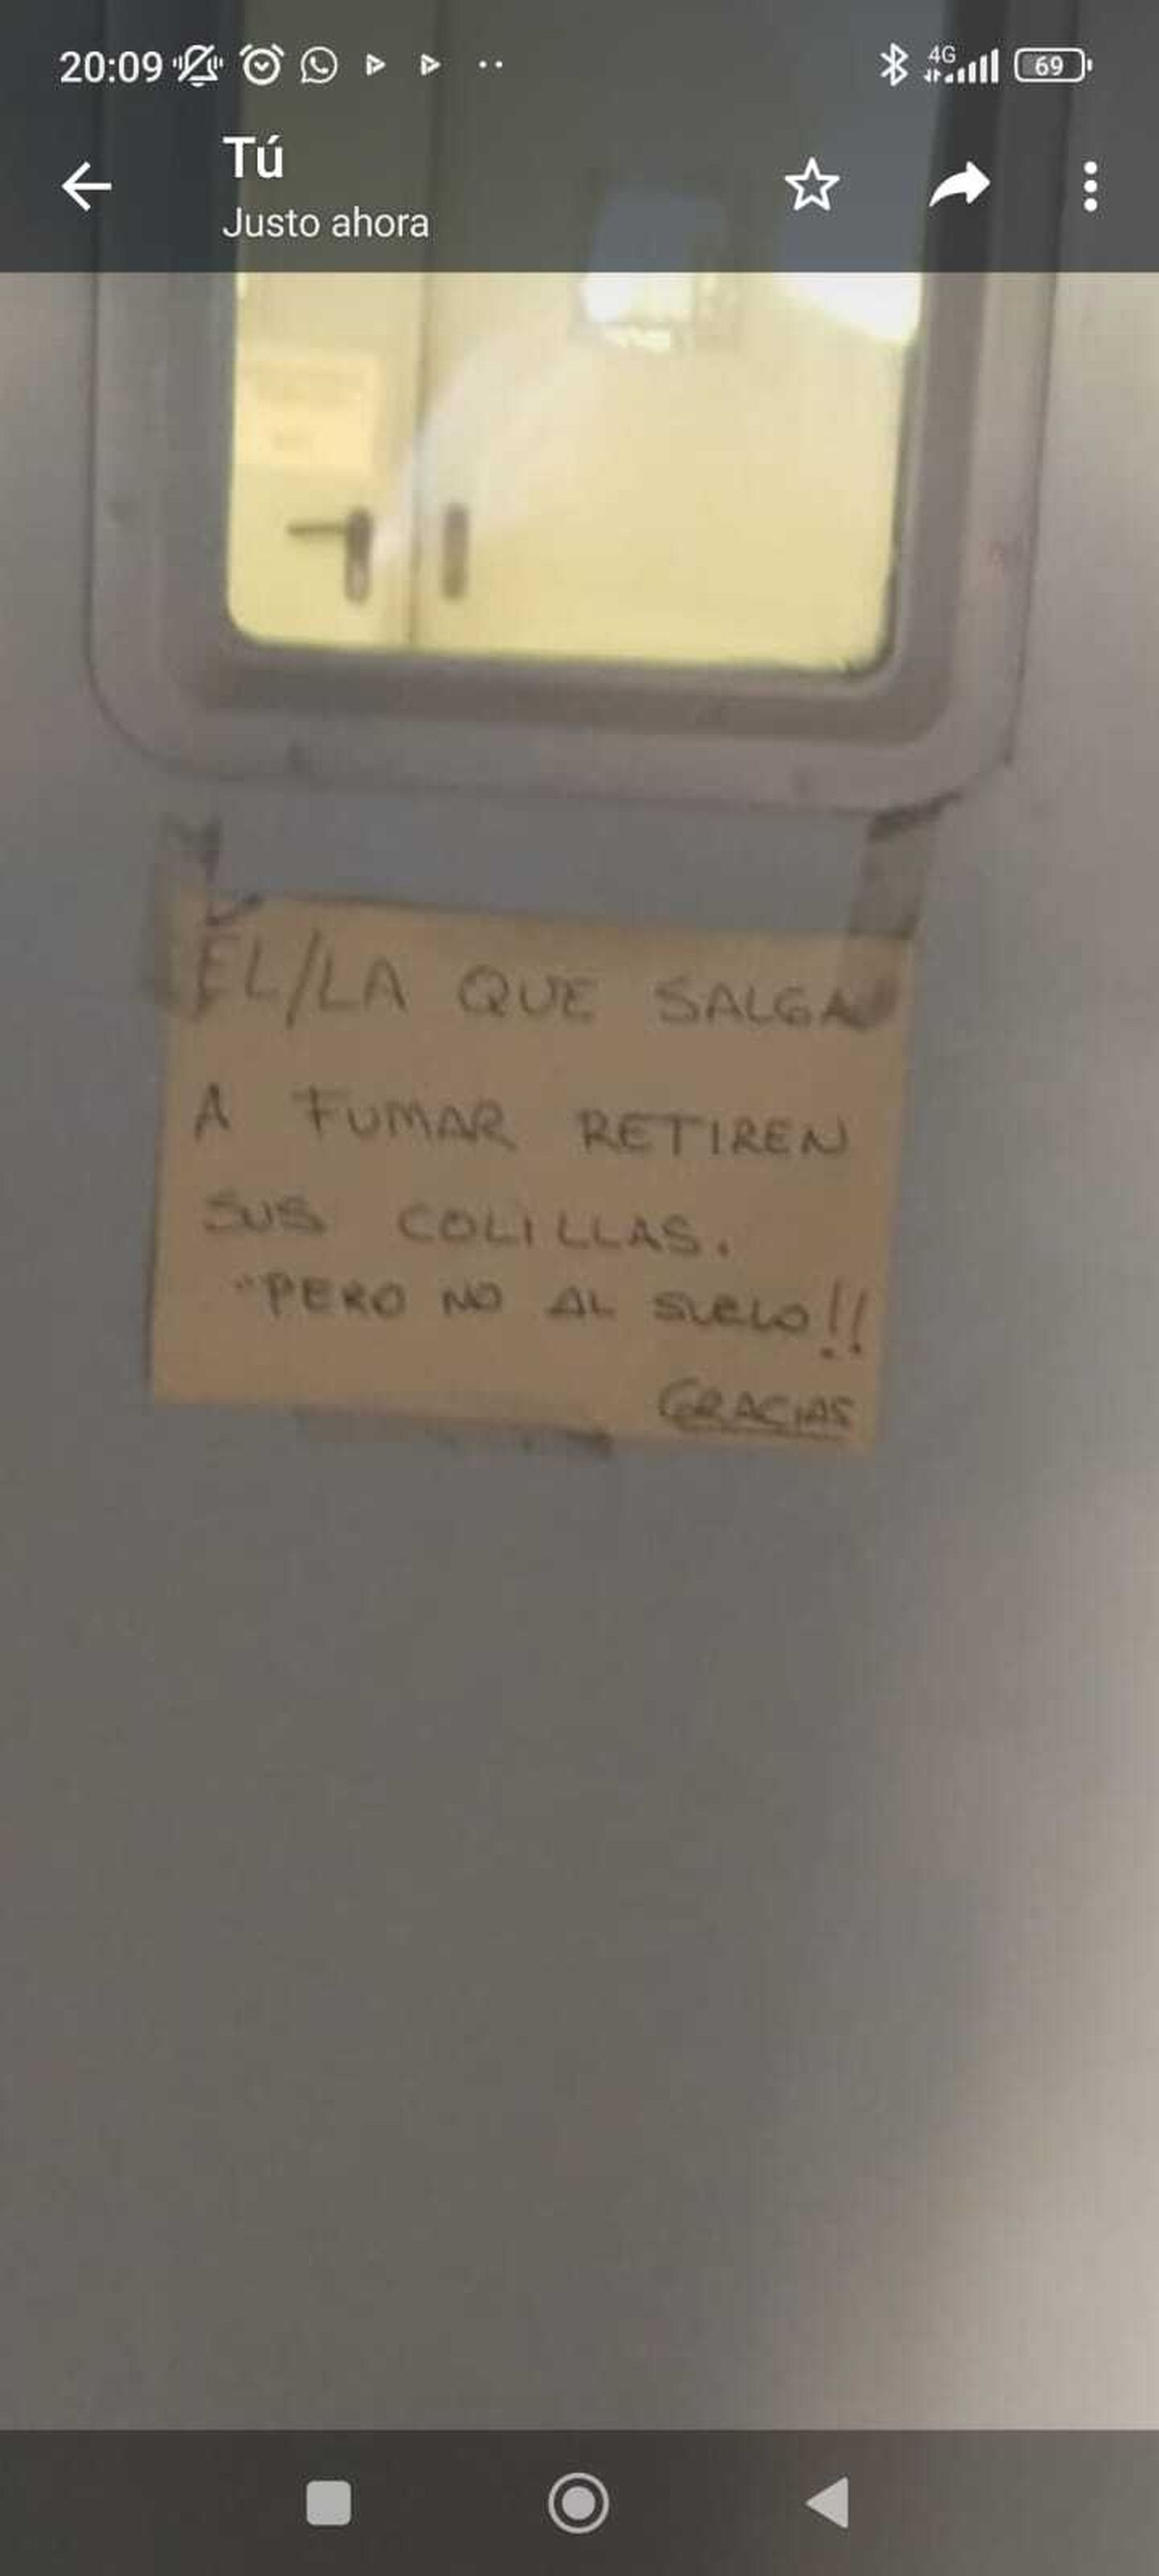 20:09
4G
69
Tú
Justo ahora
EL/LA QUE SALGA
A FUMAR RETIREN
SUS COLILLAS.
"PERO NO AL SUELO!!
GRACIAS